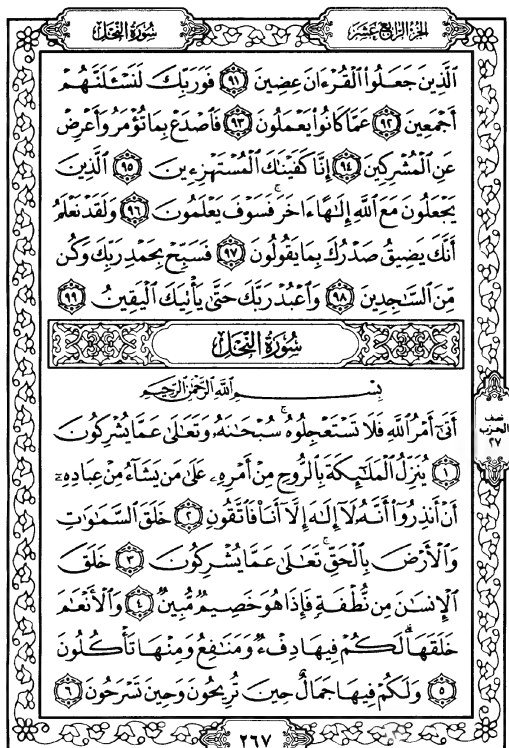 الجزء الرابع عشر
سورة النحل
الَّذِينَ جَعَلُوا الْقُرْءَانَ عِضِينَ ٩١ فَوَرَبِّكَ لَنَسْـَٔلَنَّهُمْ
أَجْمَعِينَ ٩٢ عَمَّا كَانُوا يَعْمَلُونَ ٩٣ فَاصْدَعْ بِمَا تُؤْمَرُ وَأَعْرِضْ
عَنِ الْمُشْرِكِينَ ٩٤ إِنَّا كَفَيْنَاكَ الْمُسْتَهْزِءِينَ ٩٥ الَّذِينَ
يَجْعَلُونَ مَعَ اللَّهِ إِلَٰهًا ءَاخَرَ ۚ فَسَوْفَ يَعْلَمُونَ ٩٦ وَلَقَدْ نَعْلَمُ
أَنَّكَ يَضِيقُ صَدْرُكَ بِمَا يَقُولُونَ ٩٧ فَسَبِّحْ بِحَمْدِ رَبِّكَ وَكُن
مِّنَ السَّاجِدِينَ ٩٨ وَاعْبُدْ رَبَّكَ حَتَّىٰ يَأْتِيَكَ الْيَقِينُ ٩٩
سُورَةُ النَّحْلِ
بِسْمِ اللَّهِ الرَّحْمَٰنِ الرَّحِيمِ
أَتَىٰٓ أَمْرُ اللَّهِ فَلَا تَسْتَعْجِلُوهُ ۚ سُبْحَانَهُ وَتَعَالَىٰ عَمَّا يُشْرِكُونَ
١ يُنَزِّلُ الْمَلَٰٓئِكَةَ بِالرُّوحِ مِنْ أَمْرِهِۦ عَلَىٰ مَن يَشَآءُ مِنْ عِبَادِهِۦٓ
أَنْ أَنذِرُوٓا أَنَّهُ لَآ إِلَٰهَ إِلَّآ أَنَا فَاتَّقُونِ ٢ خَلَقَ السَّمَٰوَٰتِ
وَالْأَرْضَ بِالْحَقِّ ۚ تَعَالَىٰ عَمَّا يُشْرِكُونَ ٣ خَلَقَ
الْإِنسَٰنَ مِن نُّطْفَةٍ فَإِذَا هُوَ خَصِيمٌ مُّبِينٌ ٤ وَالْأَنْعَٰمَ
خَلَقَهَا ۗ لَكُمْ فِيهَا دِفْءٌ وَمَنَٰفِعُ وَمِنْهَا تَأْكُلُونَ
٥ وَلَكُمْ فِيهَا جَمَالٌ حِينَ تُرِيحُونَ وَحِينَ تَسْرَحُونَ ٦
نصف
الحزب
٢٧
٢٦٧